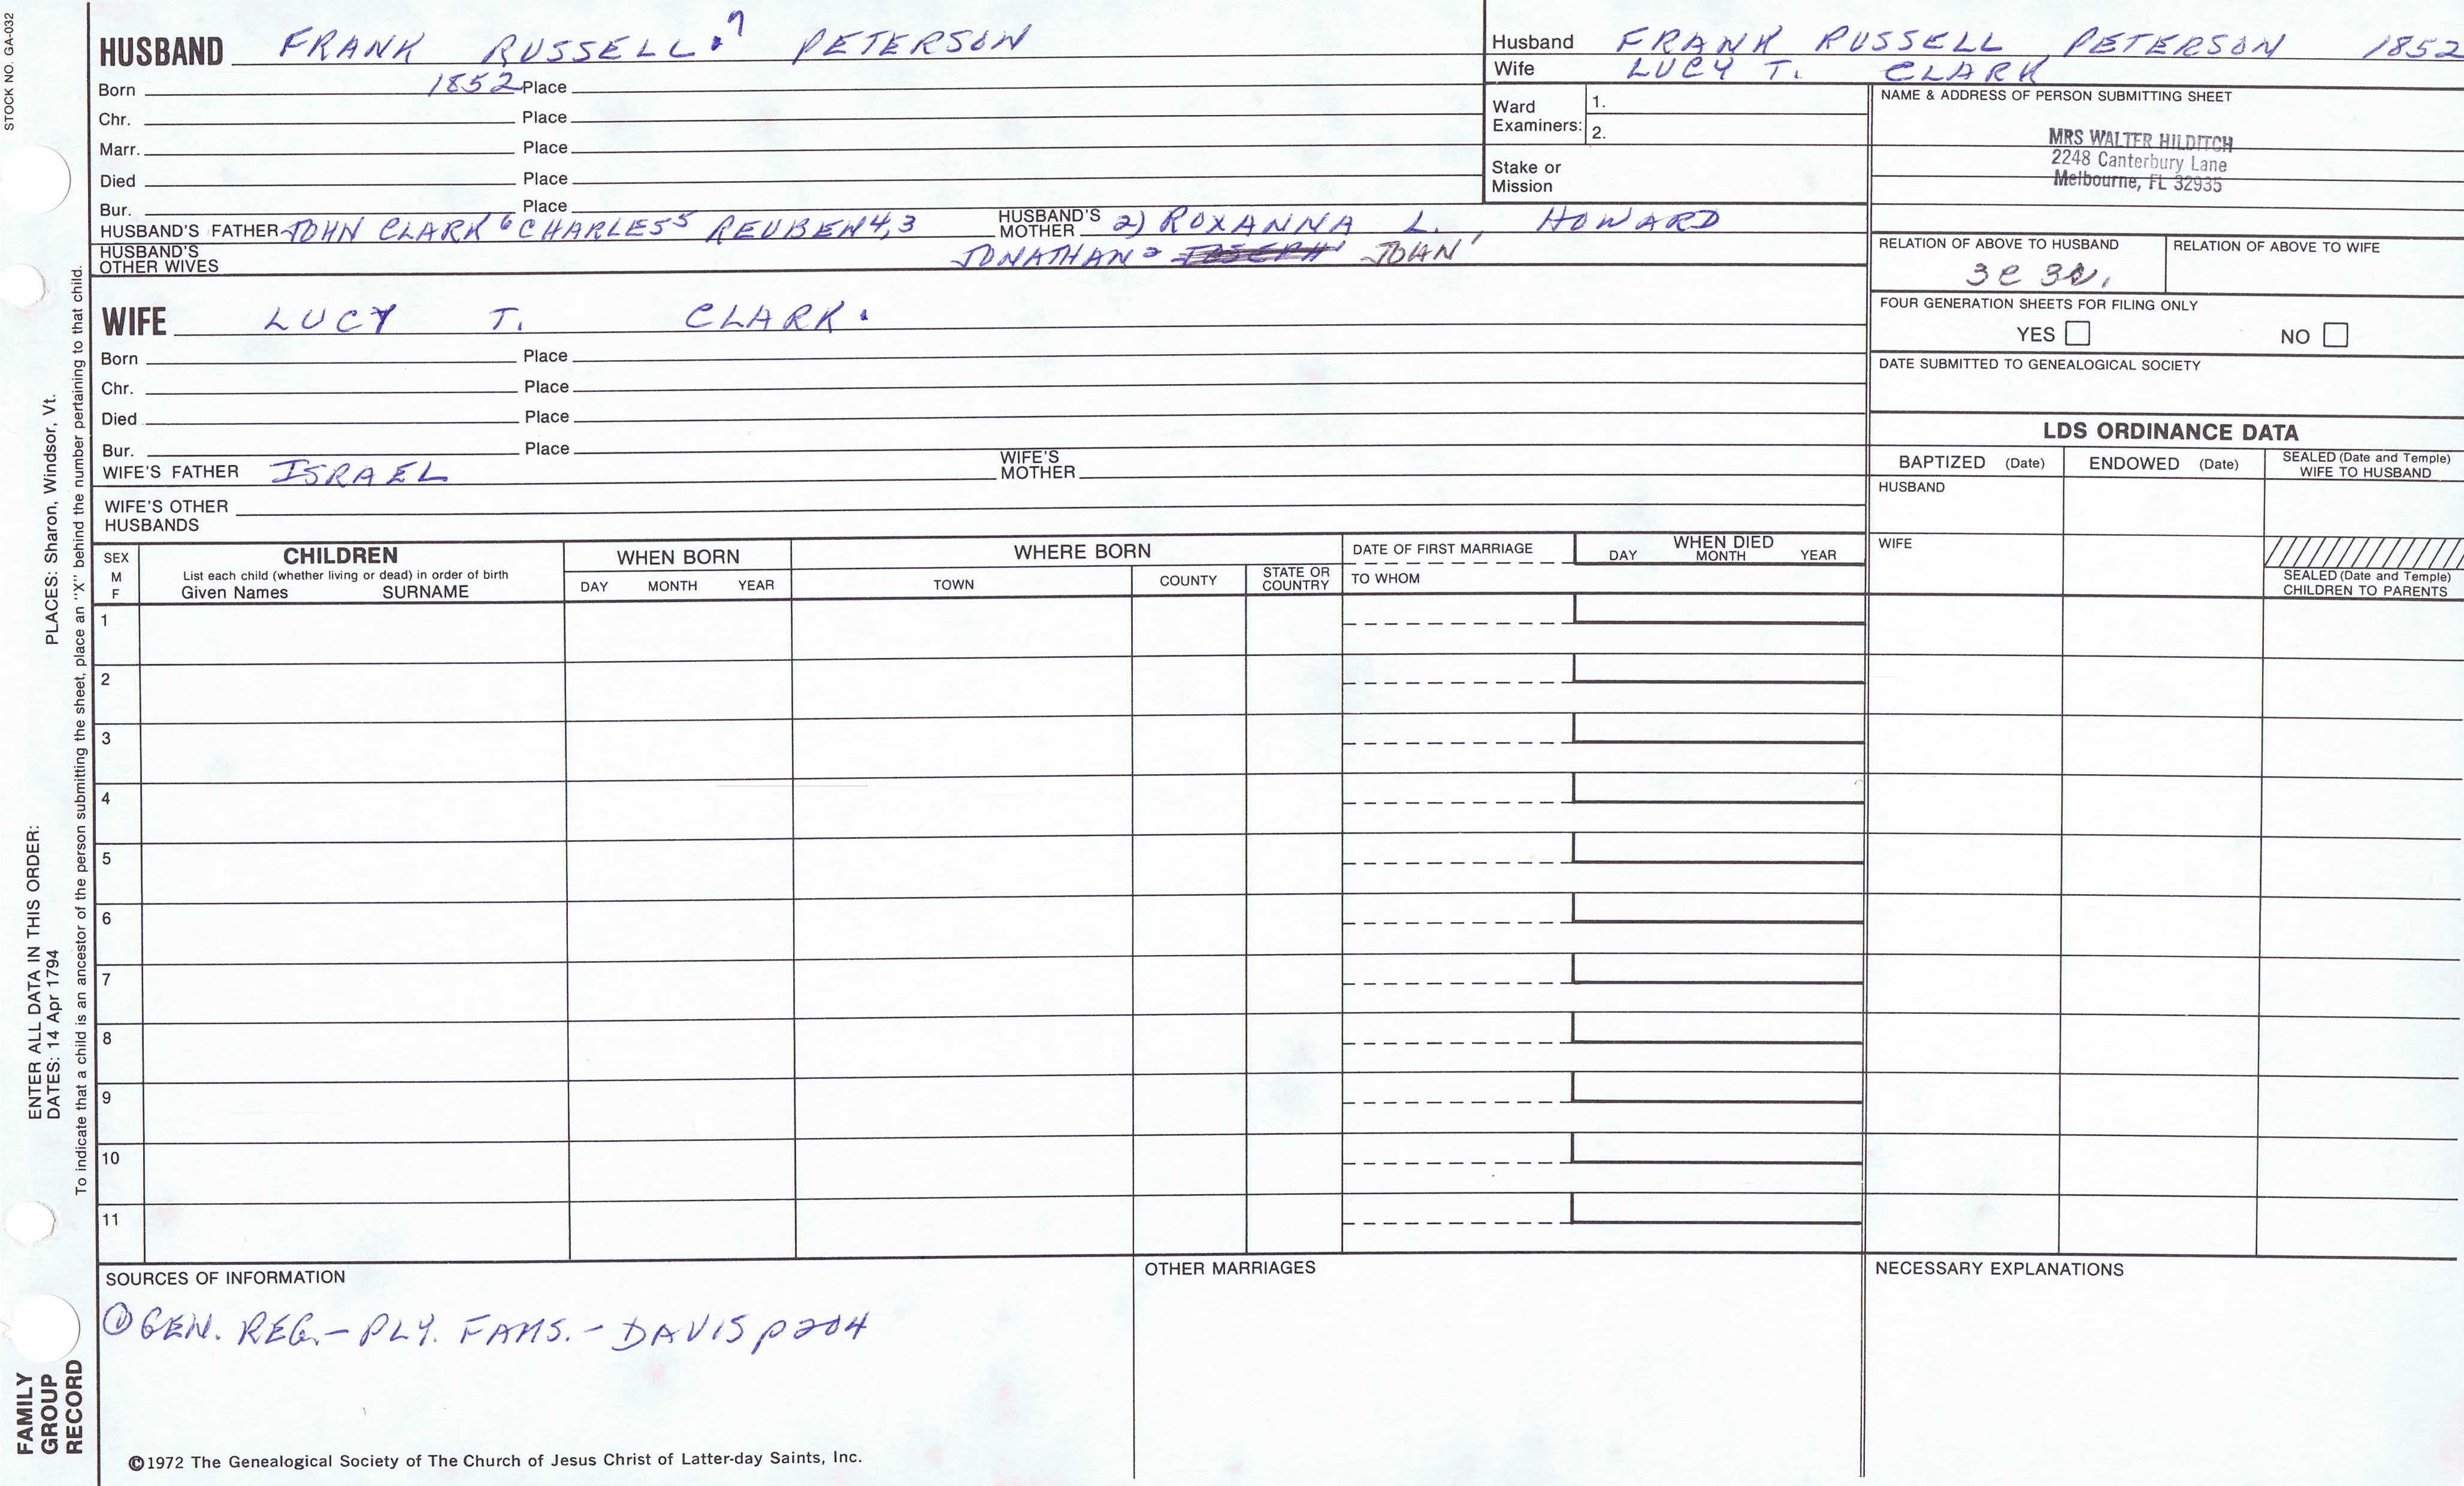 STOCK NO. GA-032
HUSBAND FRANK RUSSELL.7 PETERSON
Born 1852 Place
Chr. Place
Marr. Place
Died Place
Bur. Place
HUSBAND'S FATHER JOHN CLARK 6 CHARLES 5 REUBEN 4,3 HUSBAND'S MOTHER 2) ROXANNA L. HOWARD
HUSBAND'S OTHER WIVES JONATHAN 2 JOHN 1
WIFE LUCY T. CLARK.
Born Place
Chr. Place
Died Place
Bur. Place
WIFE'S FATHER ISRAEL WIFE'S MOTHER
WIFE'S OTHER HUSBANDS
Husband FRANK RUSSELL PETERSON 1852
Wife LUCY T. CLARK
Ward Examiners: 1.
2.
Stake or Mission
NAME & ADDRESS OF PERSON SUBMITTING SHEET
MRS WALTER HILDITCH
2248 Canterbury Lane
Melbourne, FL 32935
RELATION OF ABOVE TO HUSBAND RELATION OF ABOVE TO WIFE
3C
FOUR GENERATION SHEETS FOR FILING ONLY
YES NO
DATE SUBMITTED TO GENEALOGICAL SOCIETY
LDS ORDINANCE DATA
BAPTIZED (Date) ENDOWED (Date) SEALED (Date and Temple) WIFE TO HUSBAND
HUSBAND
WIFE
SEALED (Date and Temple) CHILDREN TO PARENTS
SEX M F
CHILDREN
List each child (whether living or dead) in order of birth
Given Names SURNAME
WHEN BORN
DAY MONTH YEAR
WHERE BORN
TOWN COUNTY STATE OR COUNTRY
DATE OF FIRST MARRIAGE
TO WHOM
WHEN DIED
DAY MONTH YEAR
1
2
3
4
5
6
7
8
9
10
11
SOURCES OF INFORMATION
① GEN. REG.- PLY. FAMS. - DAVIS p204
OTHER MARRIAGES
NECESSARY EXPLANATIONS
©1972 The Genealogical Society of The Church of Jesus Christ of Latter-day Saints, Inc.
FAMILY
GROUP
RECORD
ENTER ALL DATA IN THIS ORDER:
DATES: 14 Apr 1794 PLACES: Sharon, Windsor, Vt.
To indicate that a child is an ancestor of the person submitting the sheet, place an "X" behind the number pertaining to that child.